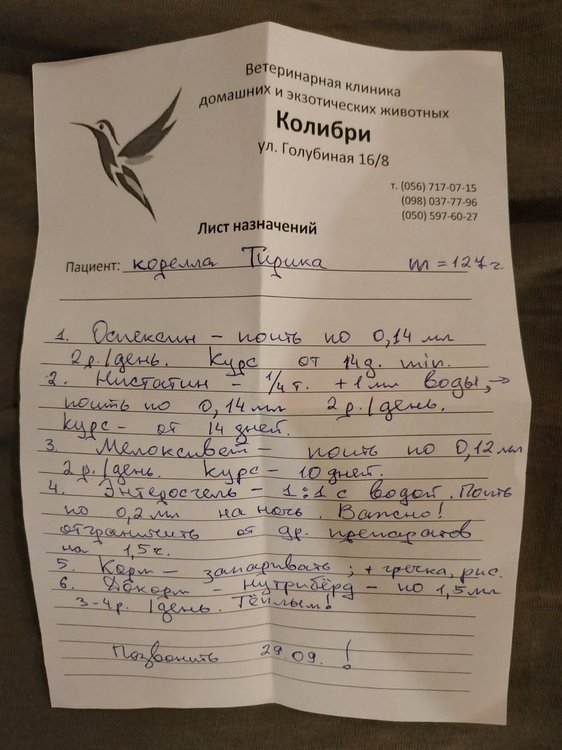 Ветеринарная клиника
домашних и экзотических животных
Колибри
ул. Голубиная 16/8
т. (056) 717-07-15
(098) 037-77-96
(050) 597-60-27
Лист назначений
Пациент: корелла Тирика m = 127 г
1. Оспексин – поить по 0,14 мл
2 р./день. Курс от 14 д. min.
2. Нистатин – 1/4 т. + 1 мл воды, →
поить по 0,14 мл 2 р./день.
Курс – от 14 дней.
3. Мелоксивет – поить по 0,12 мл
2 р./день. Курс – 10 дней.
4. Энтеросгель – 1:1 с водой. Поить
по 0,2 мл на ночь. Важно!
отграничить от др. препаратов
на 1,5 ч.
5. Корм – запаривать; + гречка, рис.
6. Докорм – нутриბёрд – по 1,5 мл
3-4 р. /день. Тёплым!
Позвонить 29.09. !